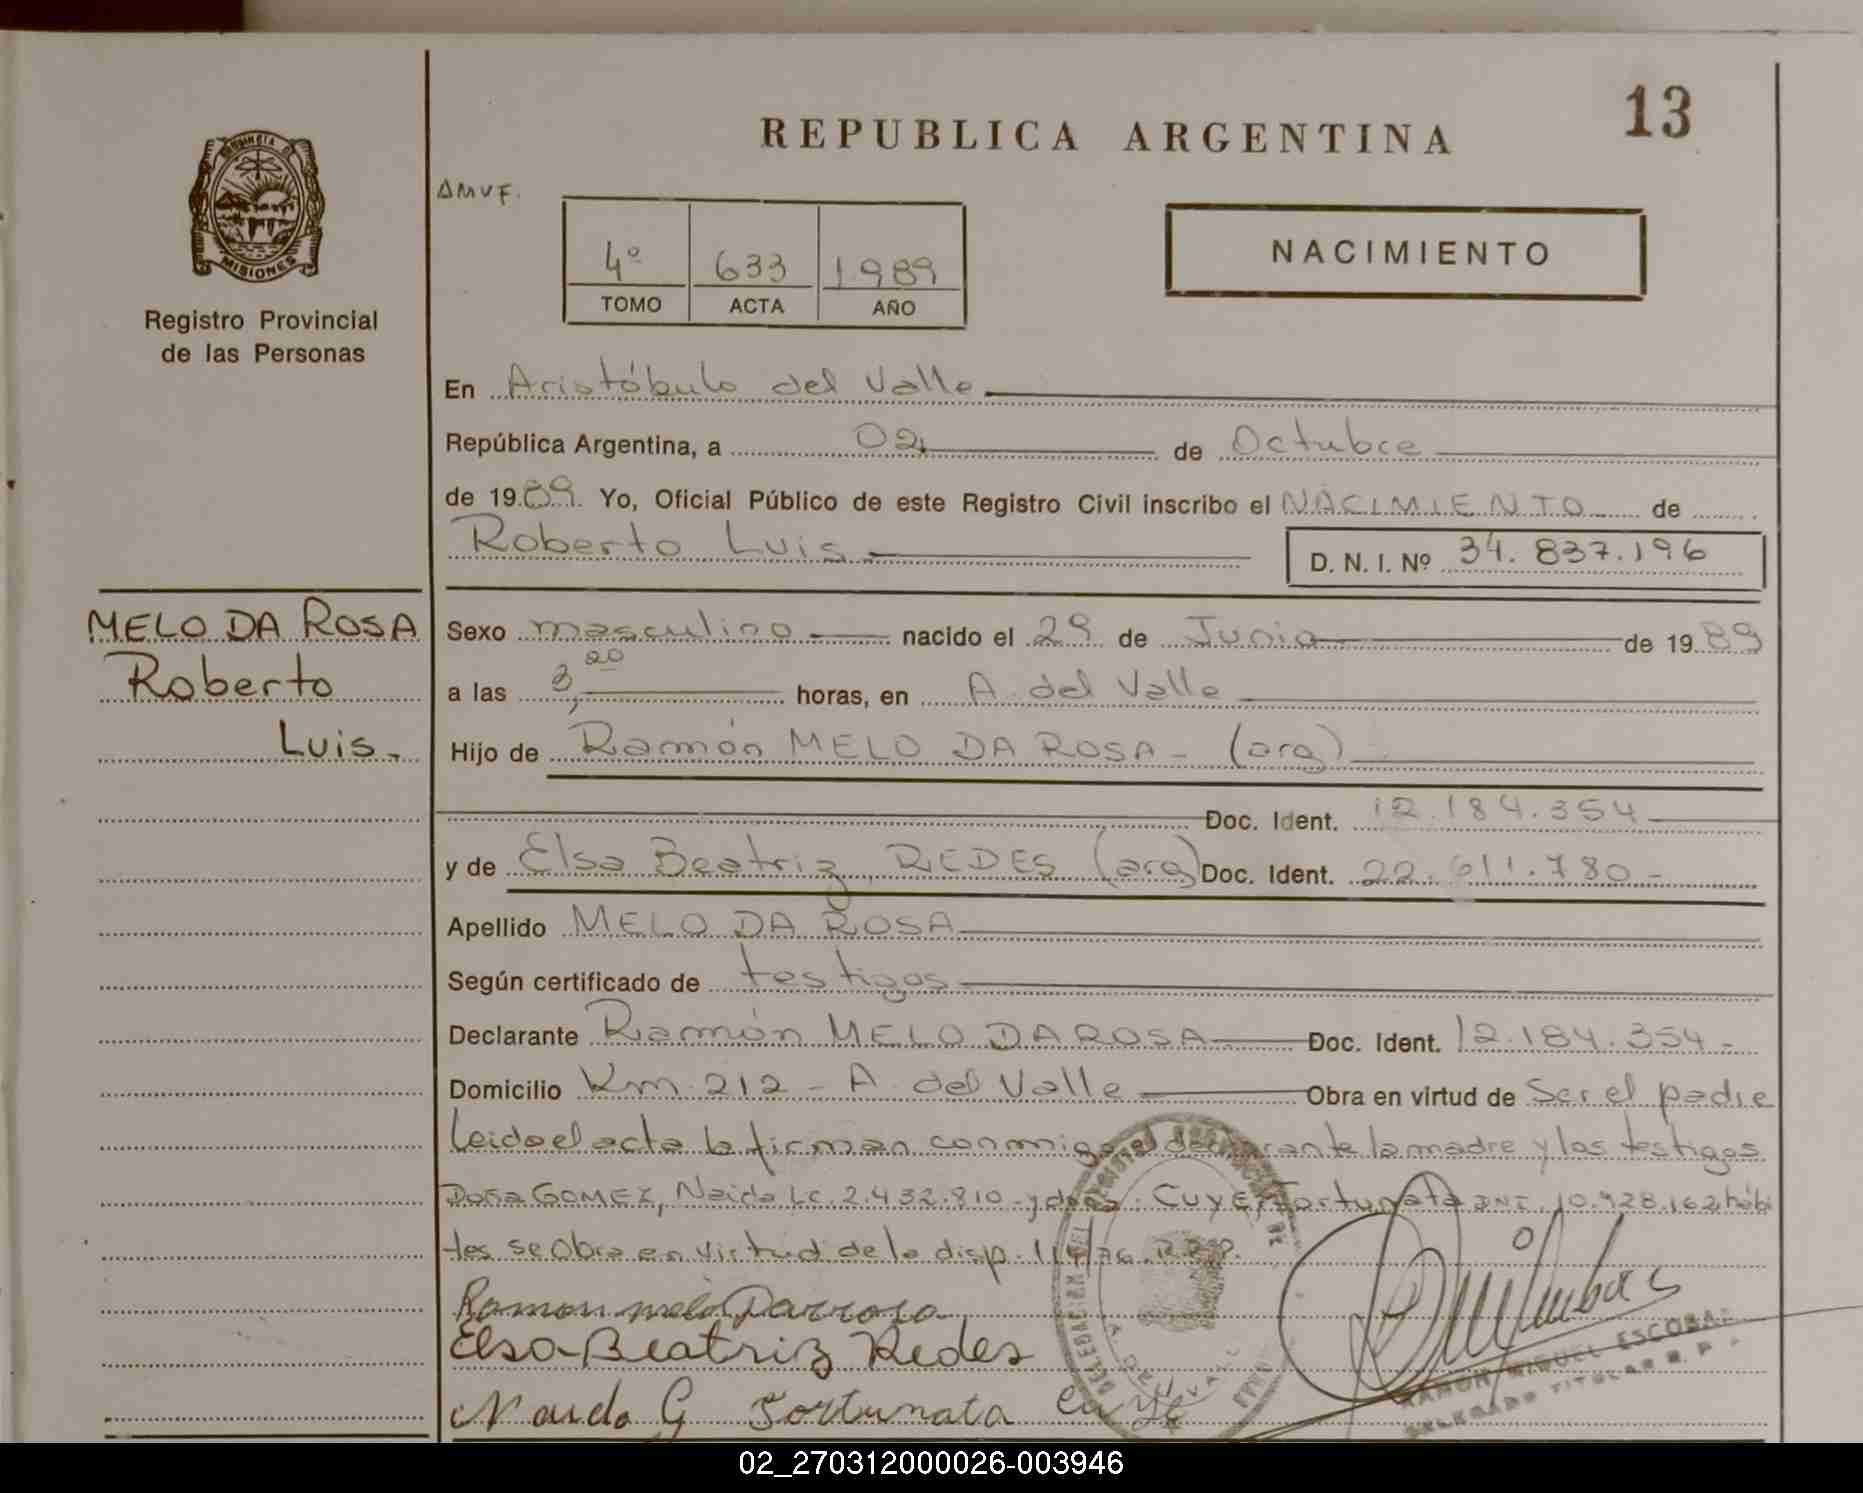 13
REPUBLICA ARGENTINA
PROVINCIA DE
MISIONES
Registro Provincial
de las Personas
AMVF.
4º 633 1989
TOMO ACTA AÑO
NACIMIENTO
En Aristóbulo del Valle
República Argentina, a 02 de Octubre
de 1989. Yo, Oficial Público de este Registro Civil inscribo el NACIMIENTO de
Roberto Luis.
D. N. I. Nº 34.837.196
MELO DA ROSA
Roberto
Luis.-
Sexo masculino nacido el 29 de Junio de 1989
a las 3,20 horas, en A. del Valle
Hijo de Ramón MELO DA ROSA - (arg)
Doc. Ident. 12.184.354
y de Elsa Beatriz REDES (arg) Doc. Ident. 22.611.780-
Apellido MELO DA ROSA
Según certificado de testigos
Declarante Ramón MELO DA ROSA Doc. Ident. 12.184.354-
Domicilio Km. 212 - A. del Valle Obra en virtud de Ser el padre
Leida el acta la firman conmigo el declarante la madre y los testigos
Doña GOMEZ, Naida Lc. 2.432.810- y doña. CUYE, Fortunata DNI 10.928.162 hábi
les se Obra en virtud de la disp. 114/76. R.P.P.
Ramon melo Darrosa
Elsa Beatriz Redes
Naida G Fortunata Cuye
RAMON MIGUEL ESCOBAR
DELEGADO TITULAR R. P.
02_270312000026-003946